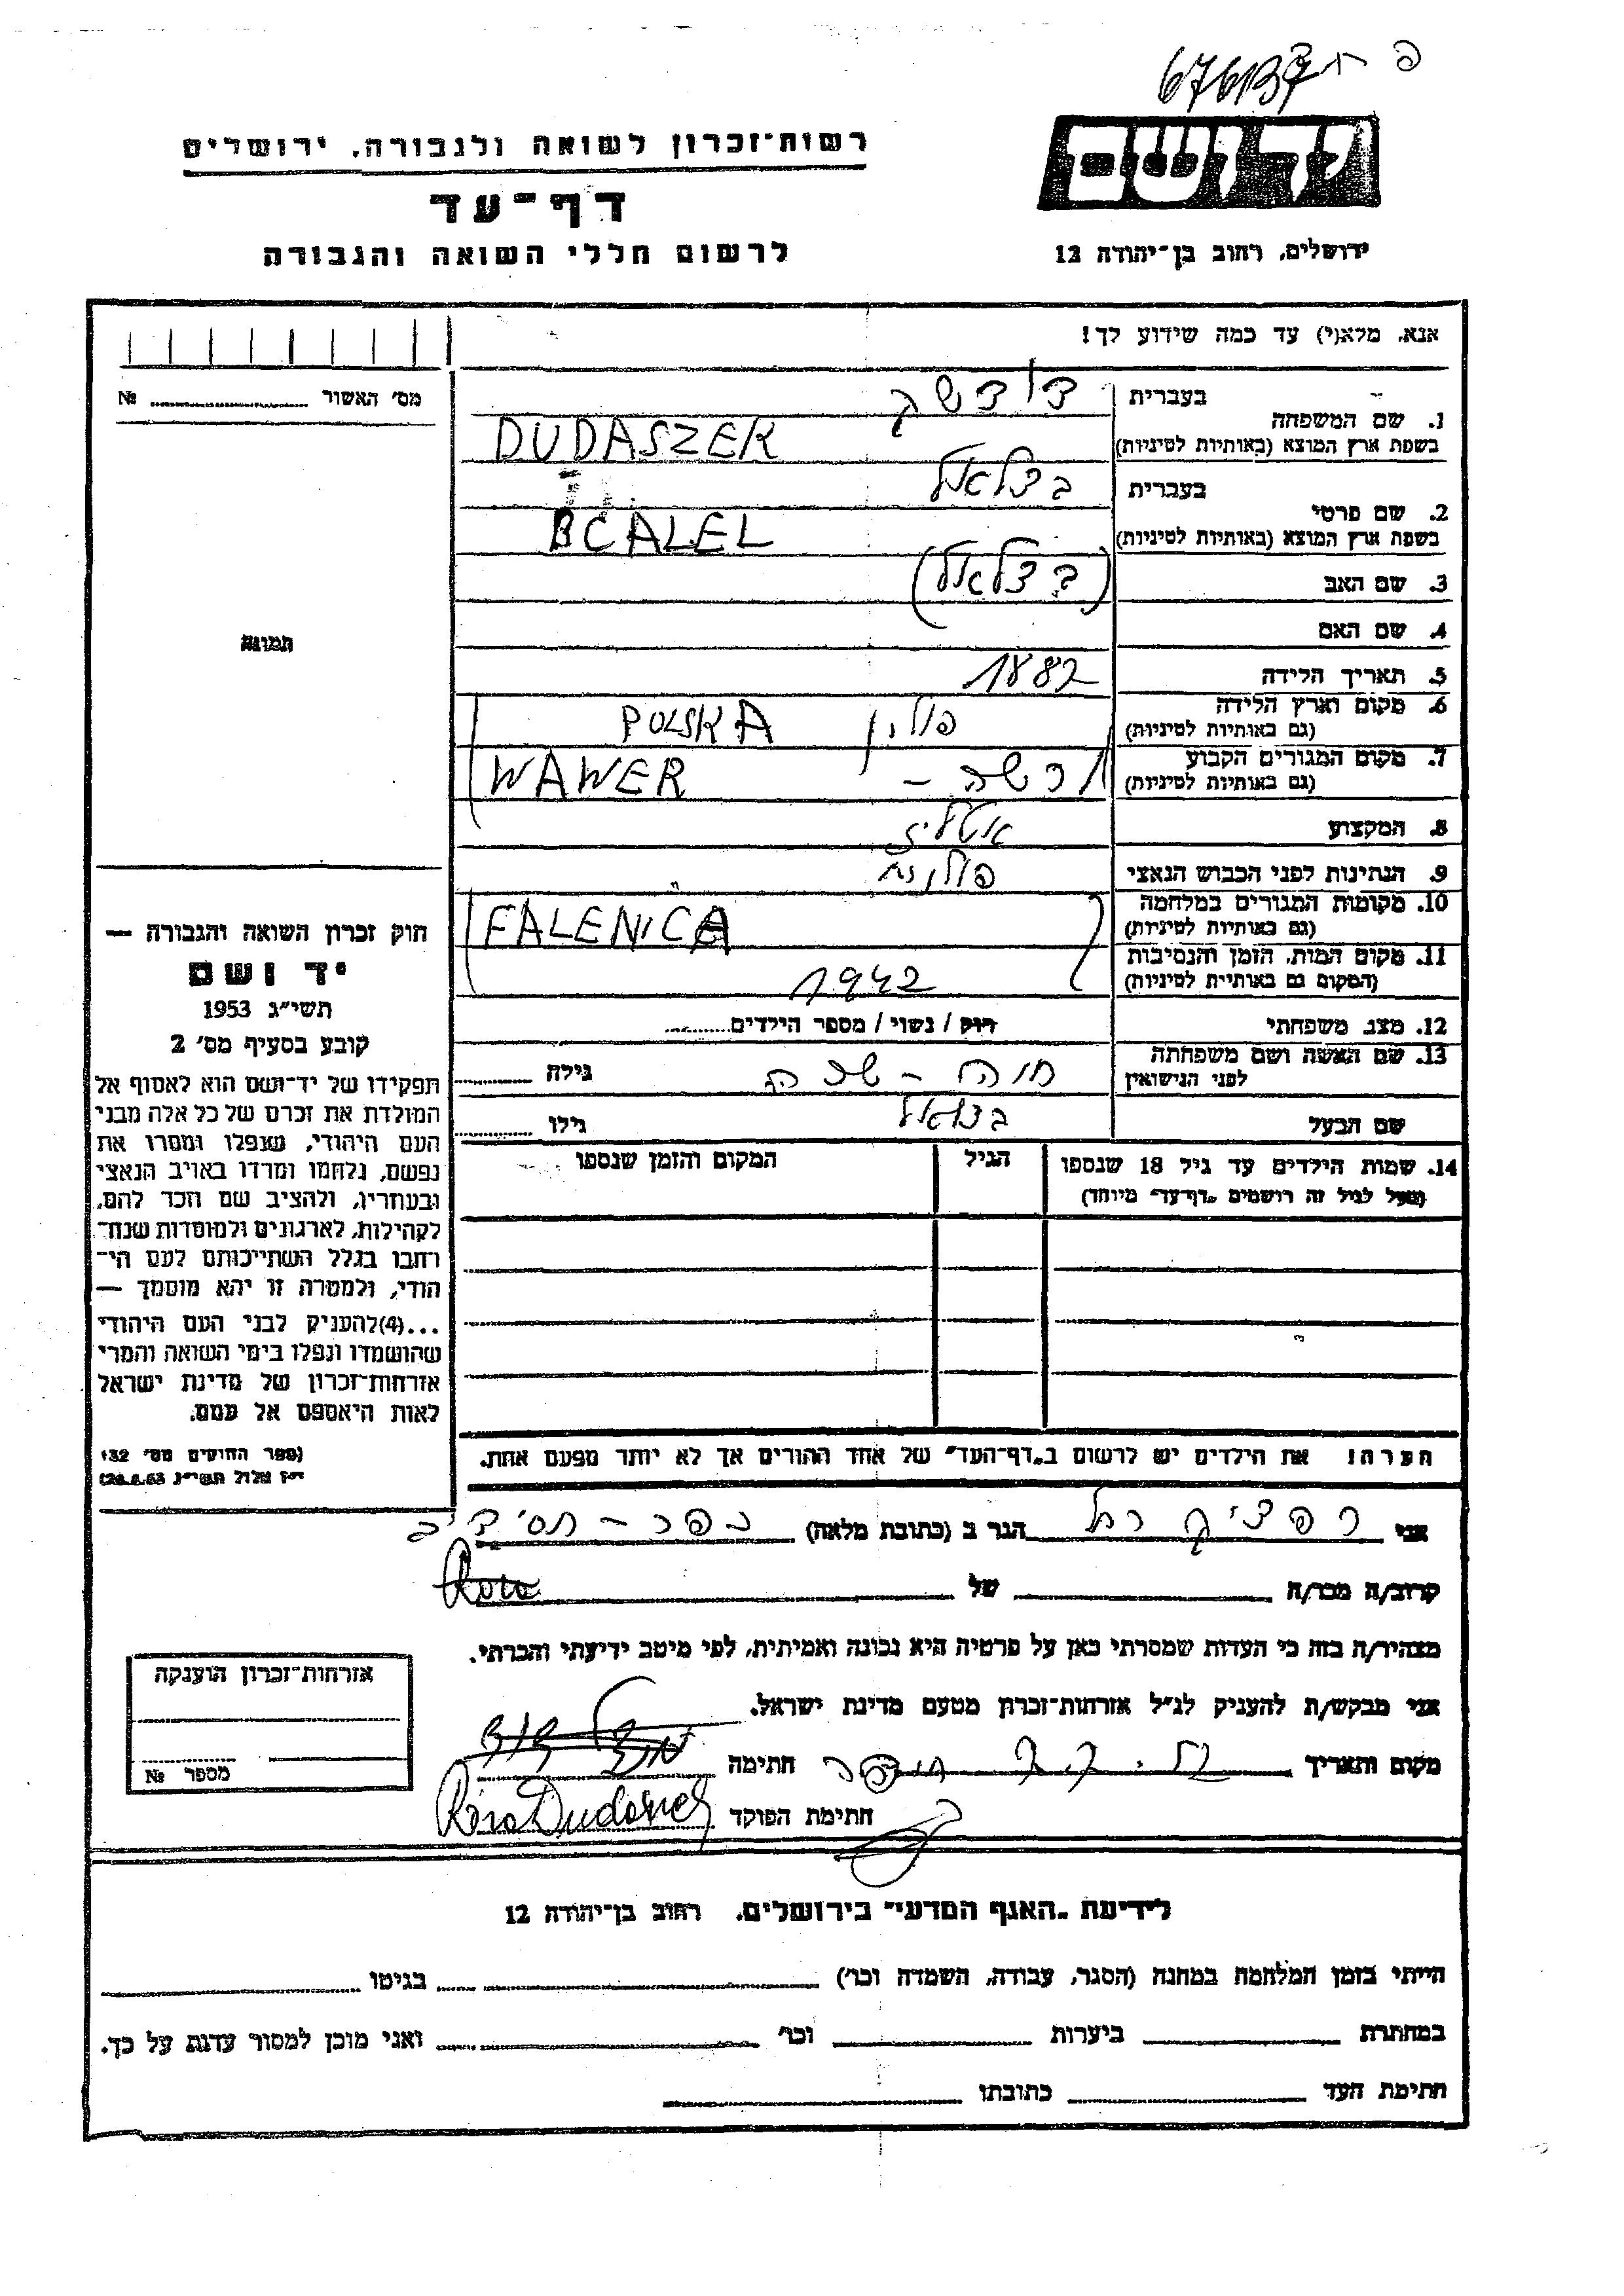 676137
רשות־זכרון לשואה ולגבורה, ירושלים
יד ושם
דף־עד
לרשום חללי השואה והגבורה
ירושלים, רחוב בן־יהודה 12
אנא, מלא(י) עד כמה שידוע לך!
מס׳ האשור № 
1. שם המשפחה
בעברית
בשפת ארץ המוצא (באותיות לטיניות)
DUDASZER
2. שם פרטי
בעברית בצלאל
בשפת ארץ המוצא (באותיות לטיניות)
BCALEL
3. שם האב (בצלאל)
4. שם האם
5. תאריך הלידה 1882
6. מקום וארץ הלידה
(גם באותיות לטיניות)
פולין POLSKA
7. מקום המגורים הקבוע
(גם באותיות לטיניות)
ורשה – WAWER
8. המקצוע אטליז
9. הנתינות לפני הכבוש הנאצי פולנית
10. מקומות המגורים במלחמה
(גם באותיות לטיניות)
FALENICA
11. מקום המות, הזמן והנסיבות
(המקום גם באותיות לטיניות)
1942
12. מצב משפחתי רווק / נשוי / מספר הילדים
13. שם האשה ושם משפחתה
לפני הנישואין
חוה – גילה
שם הבעל בצלאל גילו
14. שמות הילדים עד גיל 18 שנספו
(מעל לגיל זה רושמים „דף־עד״ מיוחד)
הגיל
המקום והזמן שנספו
תמונה
חוק זכרון השואה והגבורה —
יד ושם
תשי״ג 1953
קובע בסעיף מס׳ 2
תפקידו של יד־ושם הוא לאסוף אל
המולדת את זכרם של כל אלה מבני
העם היהודי, שנפלו ומסרו את
נפשם, נלחמו ומרדו באויב הנאצי
ובעוזריו, ולהציב שם וזכר להם,
לקהילות, לארגונים ולמוסדות שנח־
רבו בגלל השתייכותם לעם הי־
הודי, ולמטרה זו יהא מוסמך —
...(4)להעניק לבני העם היהודי
שהושמדו ונפלו בימי השואה והמרי
אזרחות־זכרון של מדינת ישראל
לאות היאספם אל עמם.
(ספר החוקים מס׳ 132
י״ז אלול תשי״ג 28.8.53)
הערה! את הילדים יש לרשום ב„דף־העד״ של אחד ההורים אך לא יותר מפעם אחת.
אני רחל הגר ב (כתובת מלאה) כפר –
קרוב/ה מכר/ה של
מצהיר/ה בזה כי העדות שמסרתי כאן על פרטיה היא נכונה ואמיתית, לפי מיטב ידיעתי והכרתי.
אני מבקש/ת להעניק לנ״ל אזרחות־זכרון מטעם מדינת ישראל.
מקום ותאריך חתימה
חתימת הפוקד
אזרחות־זכרון הוענקה
מספר №
לידיעת „האגף המדעי״ בירושלים, רחוב בן־יהודה 12
הייתי בזמן המלחמה במחנה (הסגר, עבודה, השמדה וכו׳) בגיטו
במחתרת ביערות וכו׳ ואני מוכן למסור עדות על כך.
חתימת העד כתובתו